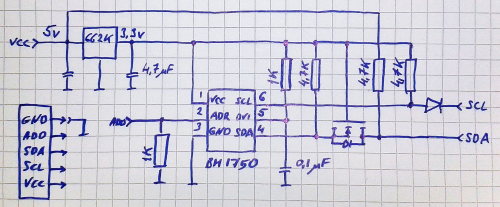 5V
662K
3,3V
VCC
4,7µF
1K
4,7K
4,7K
4,7K
1
VCC SCL
6
SCL
GND
ADO
2
ADR DVI
5
ADO
3
GND SDA
4
SDA
SDA
D1
1K
BH1750
0,1µF
SCL
VCC